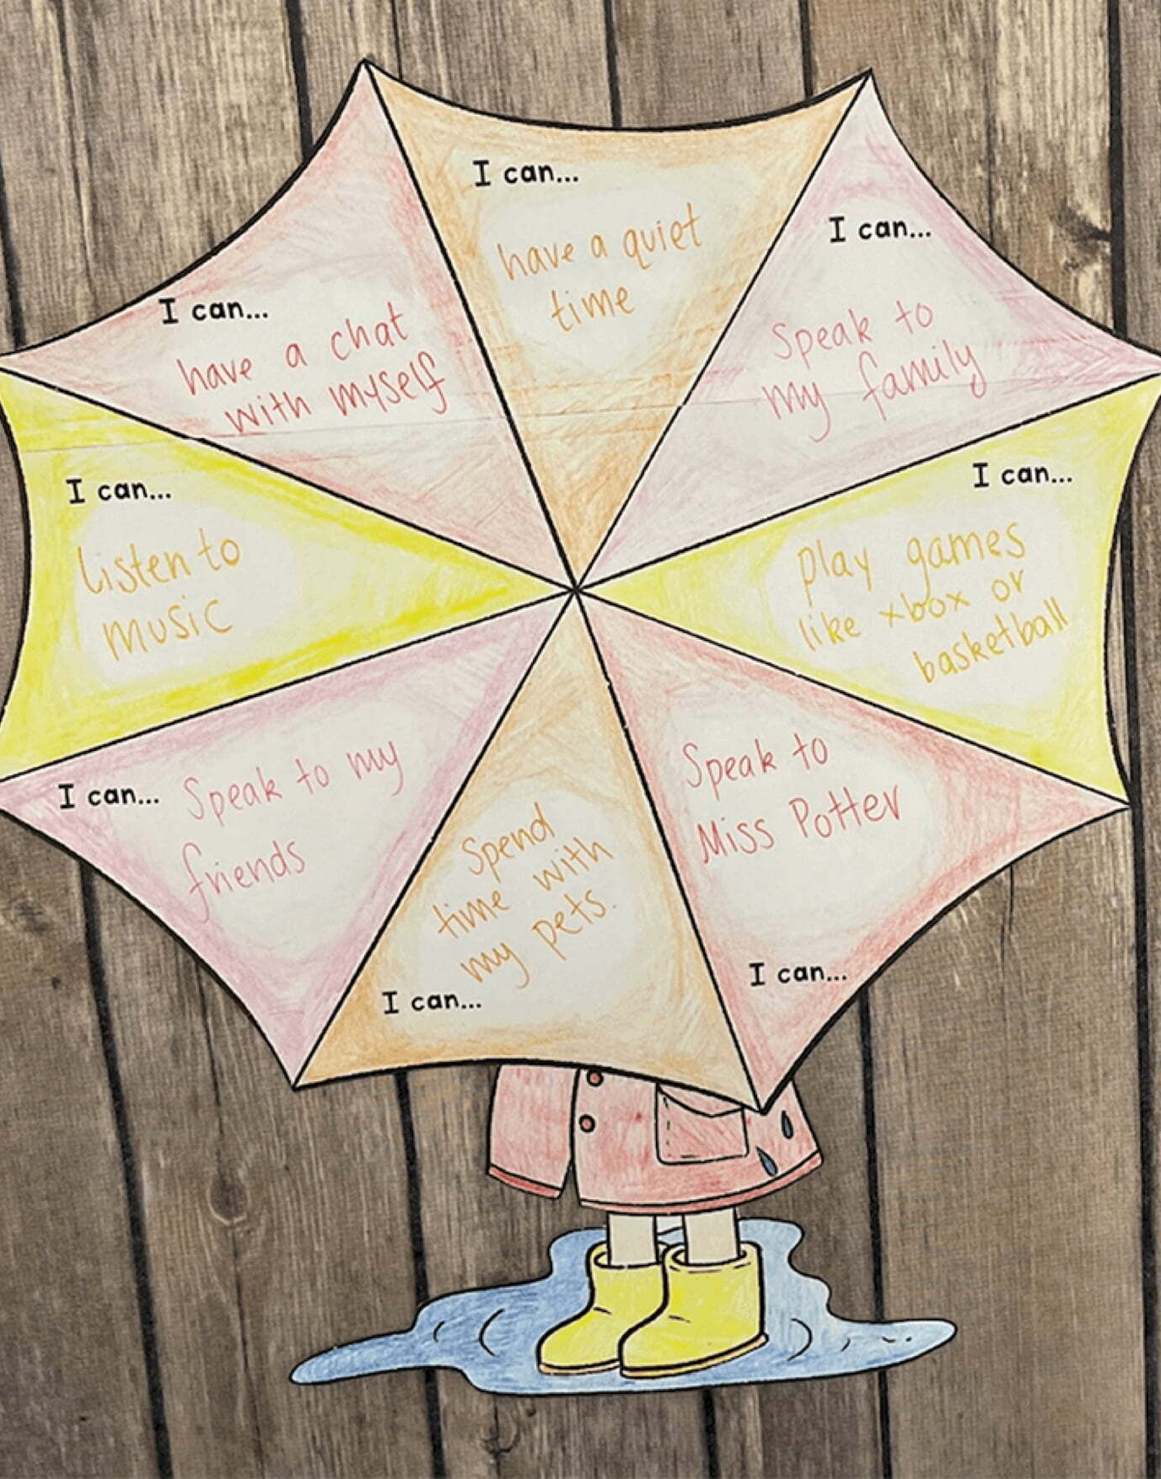 I can...
have a quiet
time
I can...
Speak to
my family
I can...
play games
like xbox or
basketball
Speak to
Miss Potter
I can...
Spend
time with
my pets.
I can...
I can... Speak to my
friends
I can...
Listen to
music
I can...
have a chat
with myself